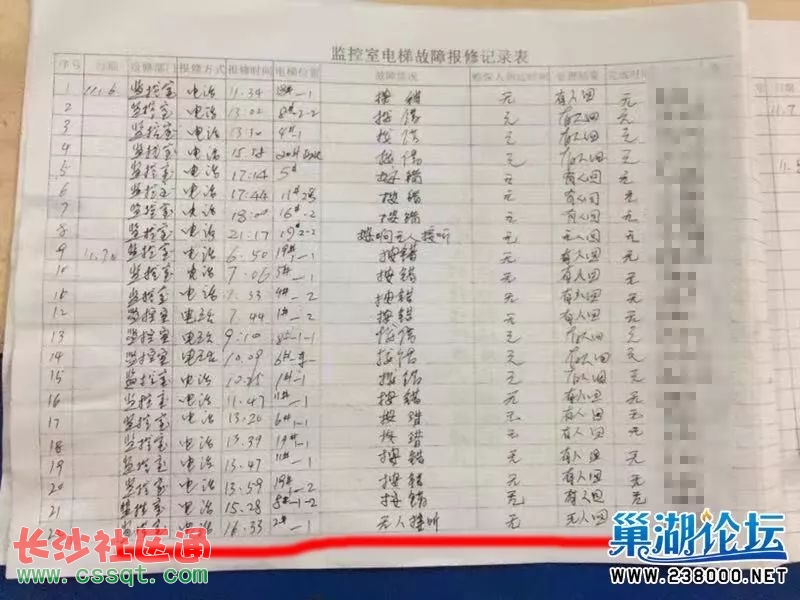 监控室电梯故障报修记录表
序号 日期 报修部门 报修方式 报修时间 电梯位置 故障情况 维保人到达时间 处理结果 完成时间
1 11.6 监控室 电话 11.34 按错 无 有人回 无
2 监控室 电话 13.02 8#2-2 按错 无 有人回 无
3 监控室 电话 13.30 4#-1 按错 无 有人回 无
4 监控室 电话 按错 无 有人回 无
5 监控室 电话 17:14 5# 按错 无 有人回 无
6 监控室 电话 17:44 按错 无 有人回 无
7 监控室 电话 18:00 16#-2 按错 无 有人回 无
8 监控室 电话 21:17 19#2-2 按响无人接听 无 无人回 无
9 监控室 电话 6.50 19#-1 按错 无 有人回 无
10 监控室 电话 7.06 5#-1 按错 无 有人回 无
监控室 电话 7.33 4#-2 按错 无 有人回 无
12 监控室 电话 7.44 1#-2 按错 无 有人回 无
13 监控室 电话 9:10 8#-1-1 按错 无 有人回 无
14 监控室 电话 10.09 按错 无 有人回 无
15 监控室 电话 10.25 1#-1 按错 无 有人回 无
16 监控室 电话 11.47 11#-1 按错 无 有人回 无
17 监控室 电话 13.20 6#-1 按错 无 有人回 无
18 监控室 电话 13.39 19#-1 按错 无 有人回 无
19 监控室 电话 13.47 11#-1 按错 无 有人回 无
20 监控室 电话 13.59 19#-2 按错 无 有人回 无
21 监控室 电话 15.28 8#-1-2 按错 无 有人回 无
监控室 电话 16.33 2#-1 无人接听 无 无人回 无
日期
11.7
长沙社区通
www.cssqt.com
巢湖论坛
WWW.238000.NET